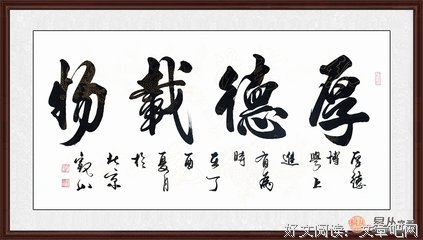 厚德載物
厚德
博
學上
進
有為
時
在丁
酉
夏月
於
北京
觀山
好文阅读：文章吧网